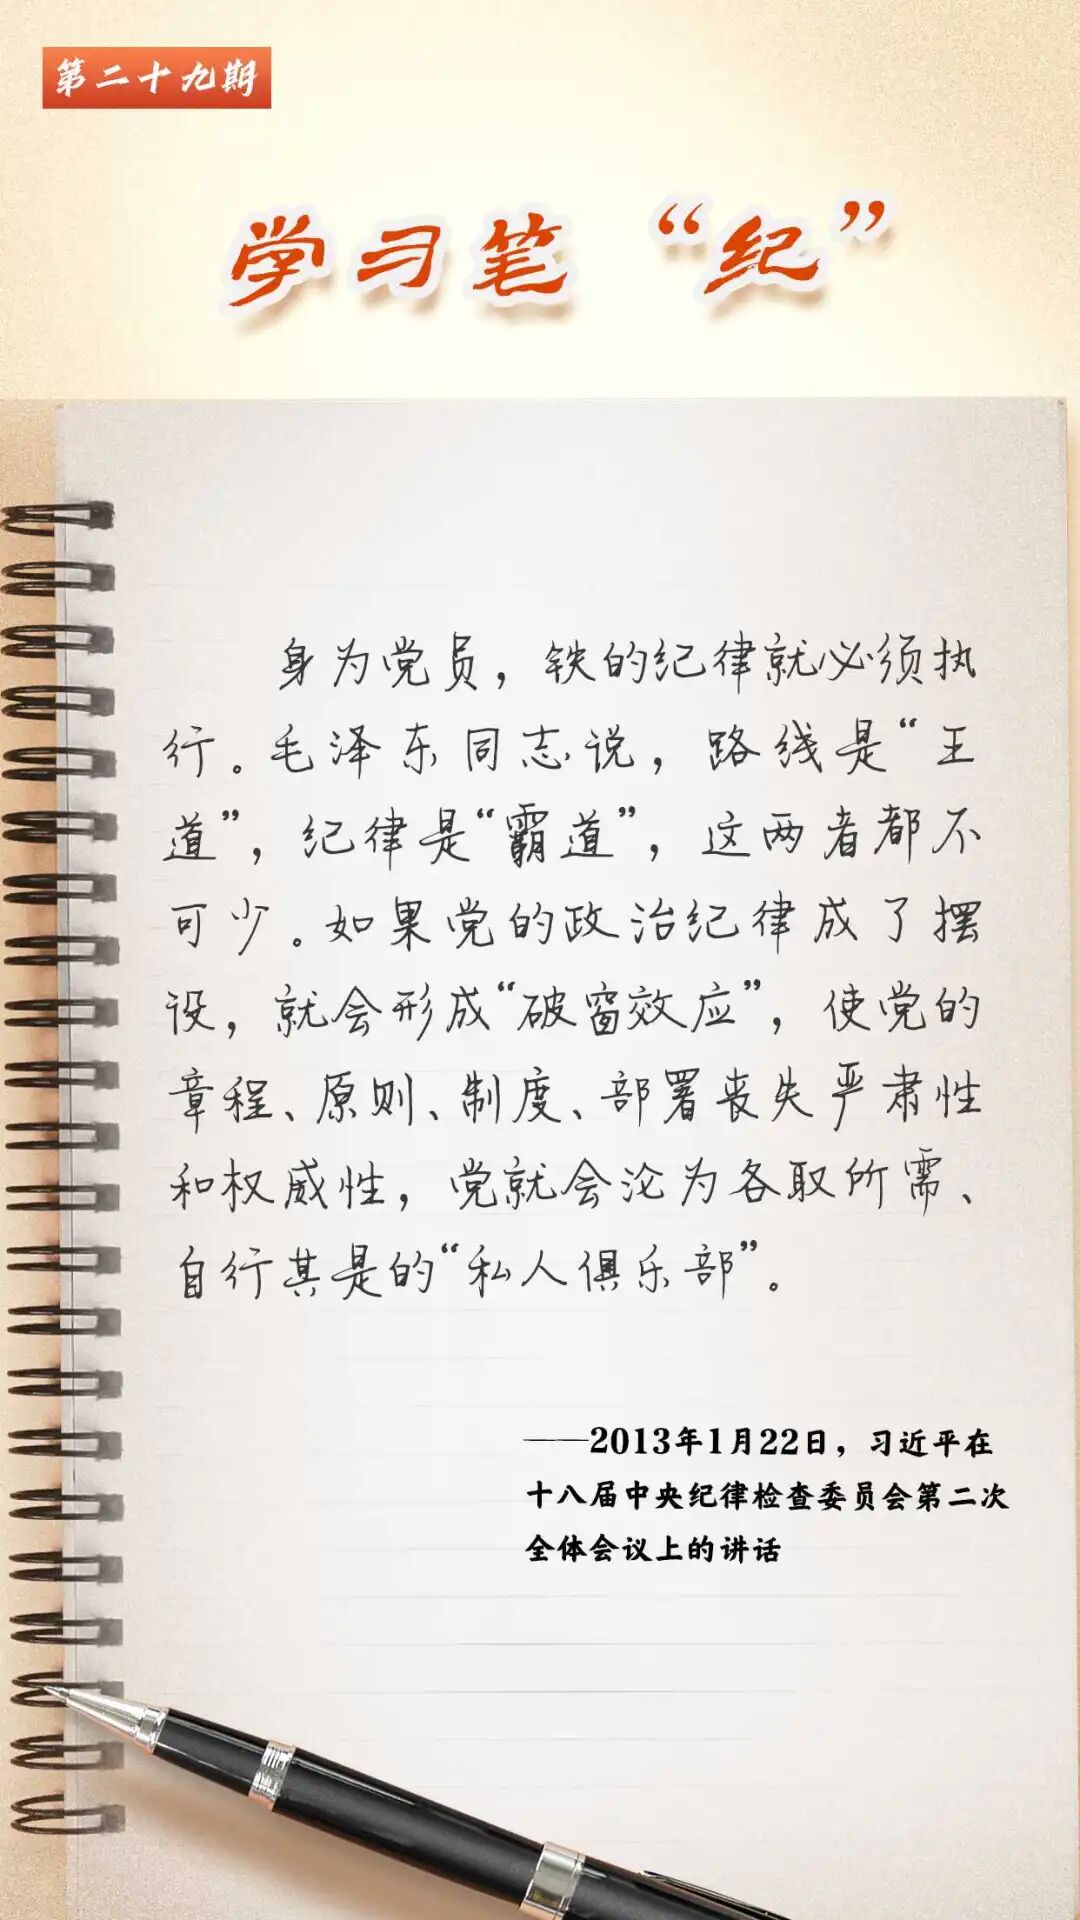 第二十九期
学习笔“纪”
身为党员，铁的纪律就必须执
行。毛泽东同志说，路线是“王
道”，纪律是“霸道”，这两者都不
可少。如果党的政治纪律成了摆
设，就会形成“破窗效应”，使党的
章程、原则、制度、部署丧失严肃性
和权威性，党就会沦为各取所需、
自行其是的“私人俱乐部”。
——2013年1月22日，习近平在
十八届中央纪律检查委员会第二次
全体会议上的讲话